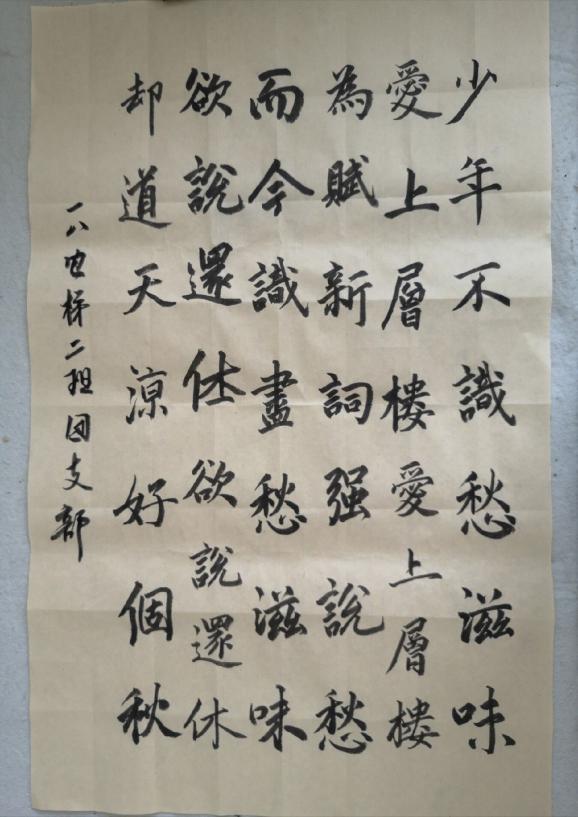 少年不識愁滋味
愛上層樓愛上層樓
為賦新詞强說愁
而今識盡愁滋味
欲說還休欲說還休
却道天涼好個秋
一八电梯二班团支部